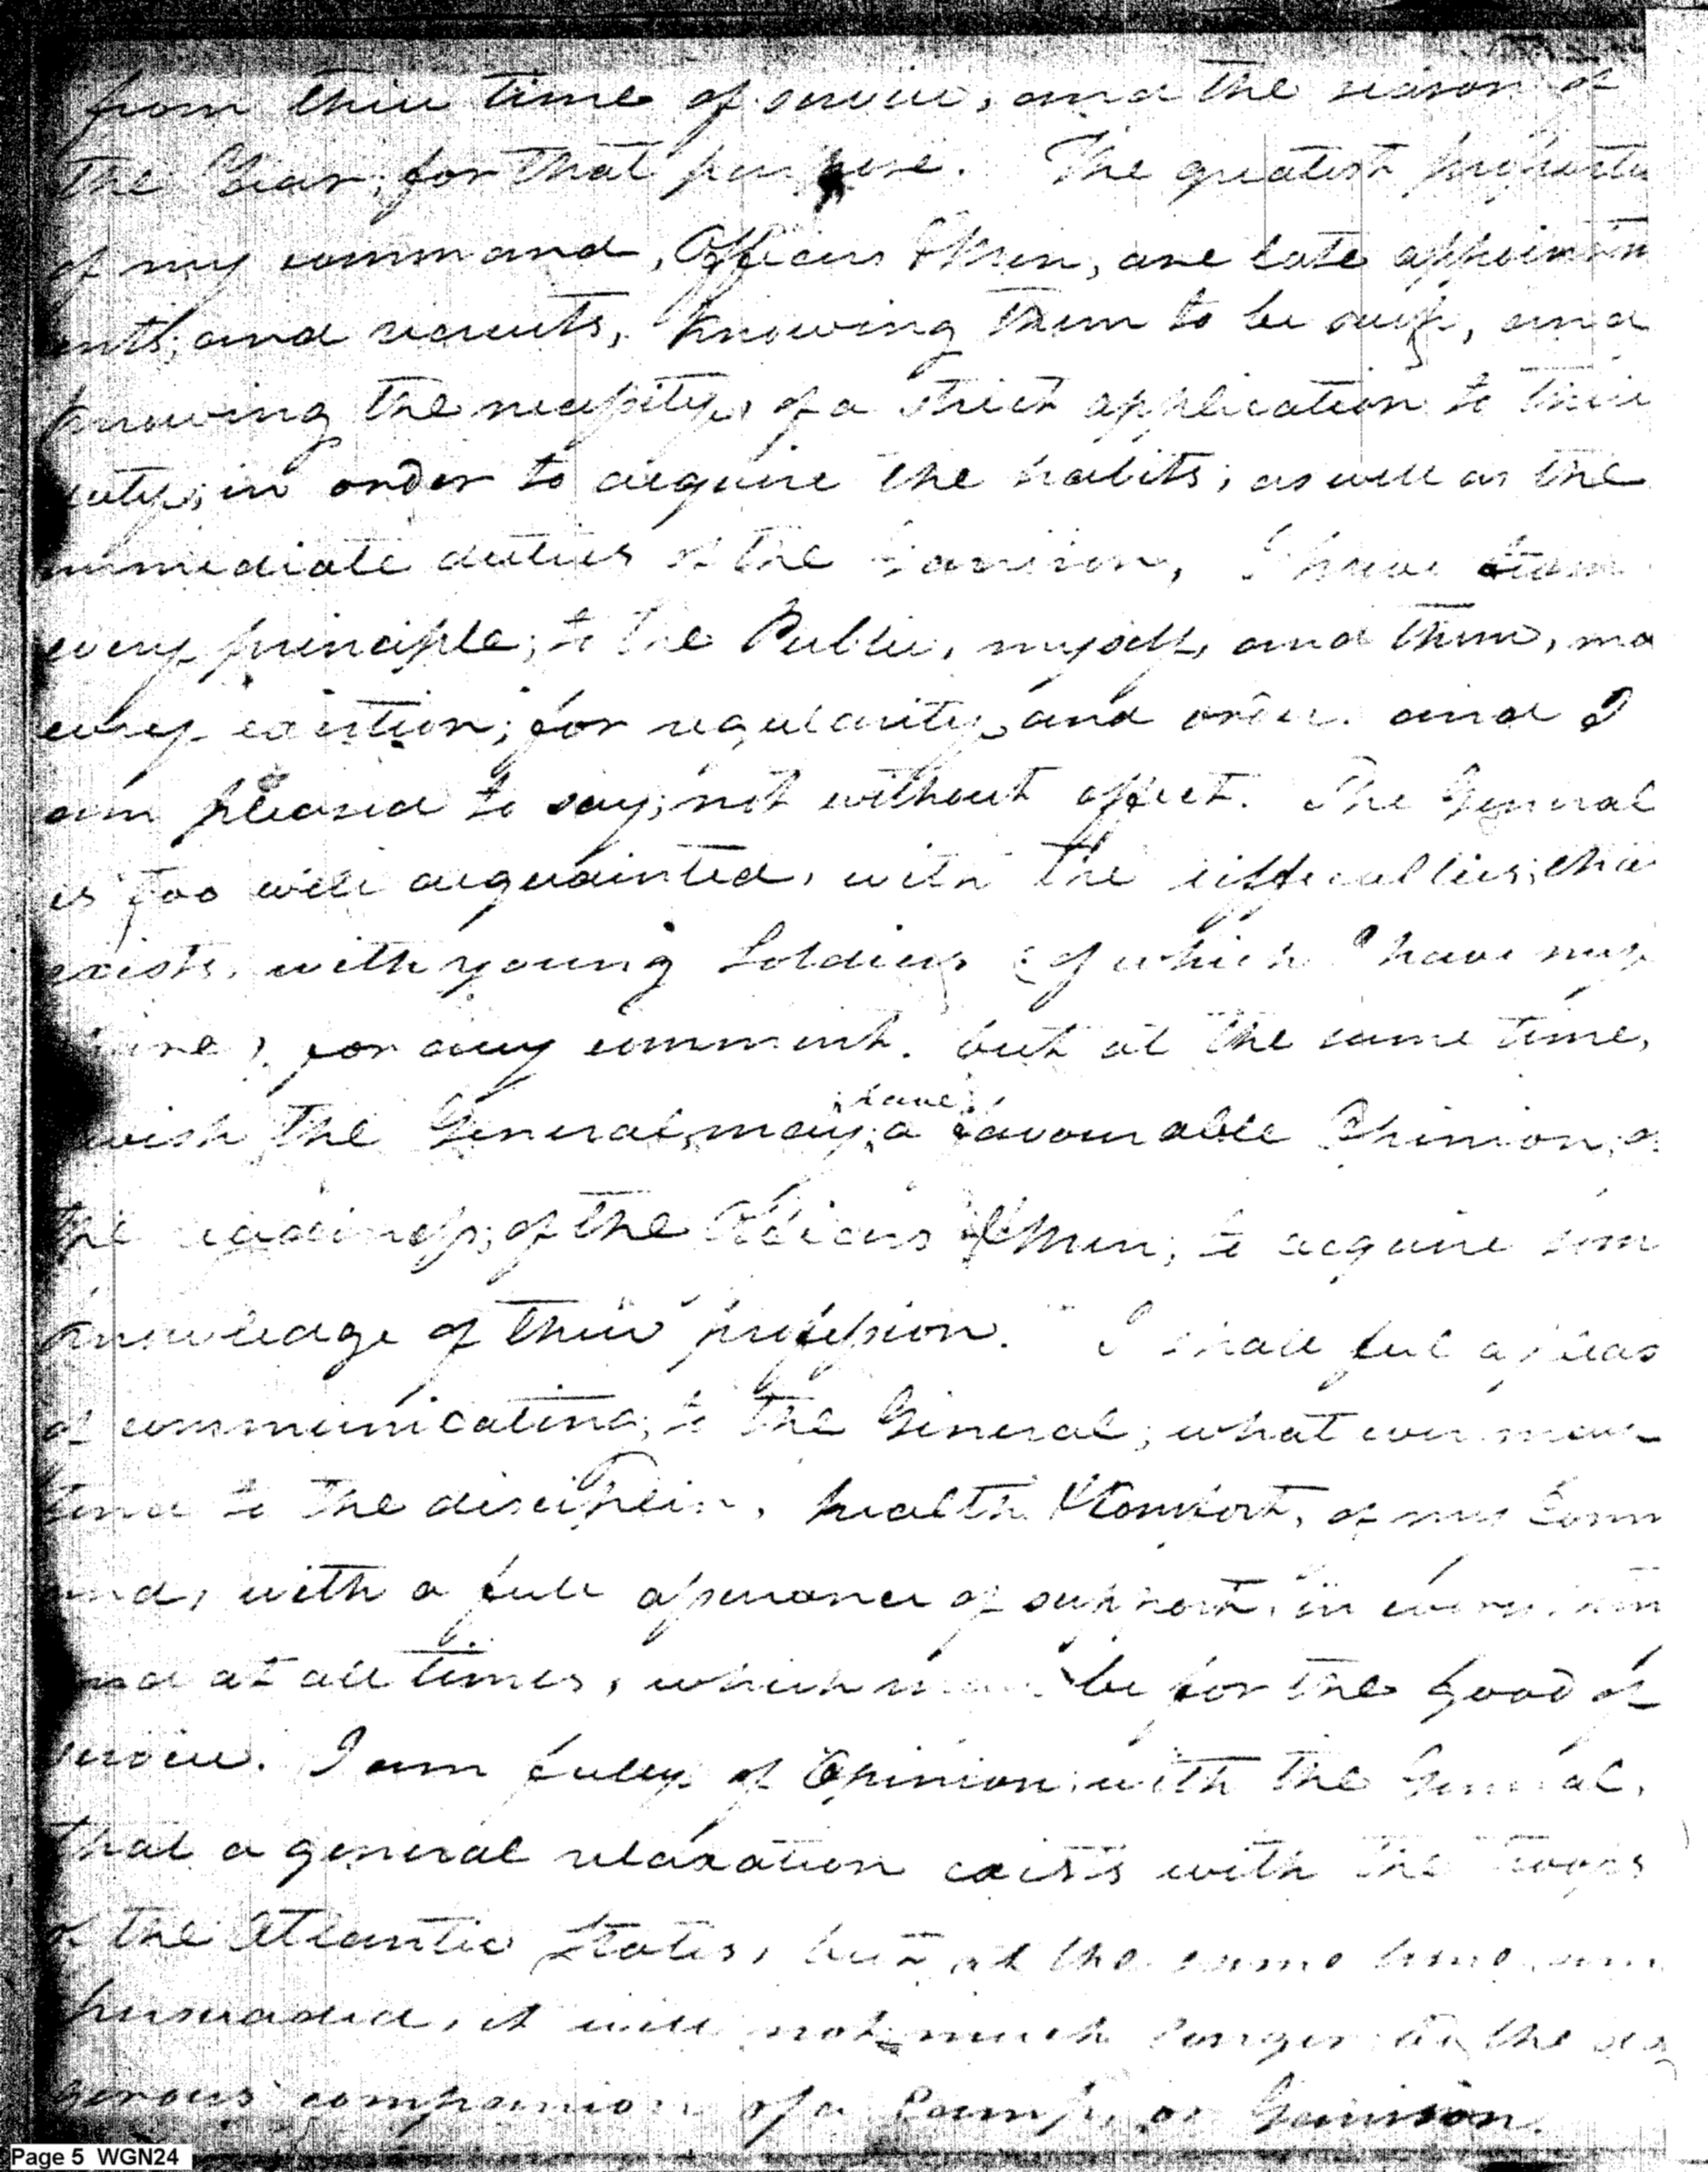 from their time of service, and the season of
the Year; for that purpose. The greatest proportio
of my command, Officers & Men, are late appointm
ents, and recruits, knowing them to be such, and
knowing the necessity, of a strict application to their
duty; in order to acquire the habits; as well as the
immediate duties of the Garrison, I have from
every principle; to the Public, myself, and them, made
every exertion; for regularity, and order. and I
am pleased to say; not without effect. The General
is too well acquainted, with the difficulties; that
exists, with young Soldiers (of which I have my
share) for any comment. but at the same time,
wish the General, may; a favourable Opinion, of
have
the readiness; of the Officers & Men; to acquire some
knowledge of their profession. I shall feel a pleas
of communicating; to the General; what ever may
tend to the disciplin, health & Comfort, of my Comm
and, with a full assurance of support, in every
and at all times, which may be for the good of
service. I am fully of Opinion; with the General,
that a general relaxation exists with the Troops
of the Atlantic States, but at the same time am
persuaded, it will not much longer be the dan
gerous companion of a Camp, or Garrison.
Page 5 WGN24